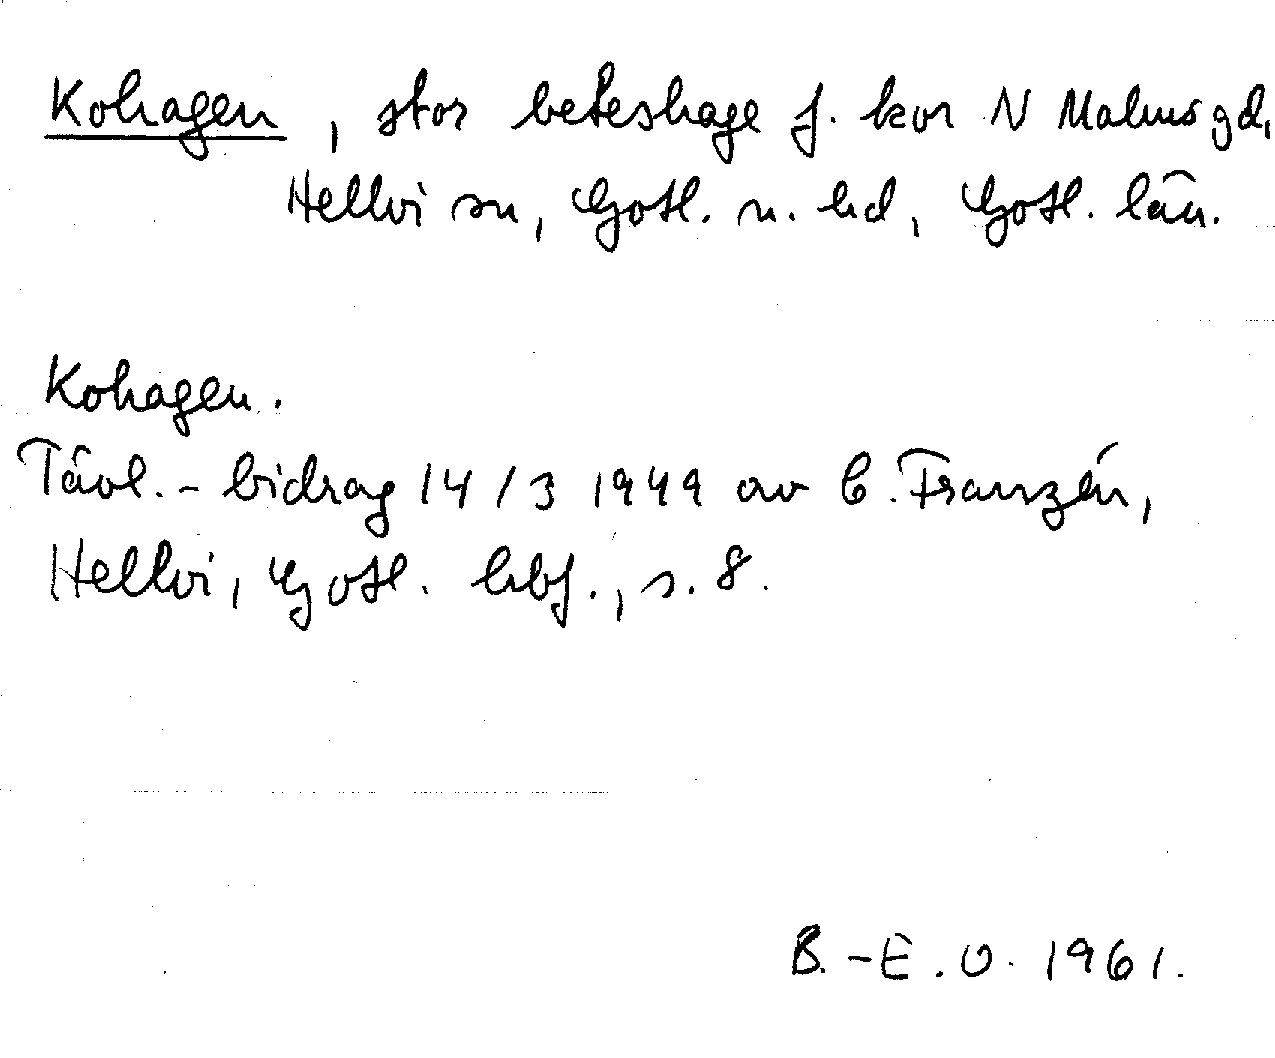 Kohagen, stor beteshage f. kor N Malms gd,
Hellvi sn, Gotl. n. hd, Gotl. län.
Kohagen.
Tävl.-bidrag 14/3 1949 av C. Franzén,
Hellvi, Gotl. hbf., s. 8.
B.-E. O. 1961.